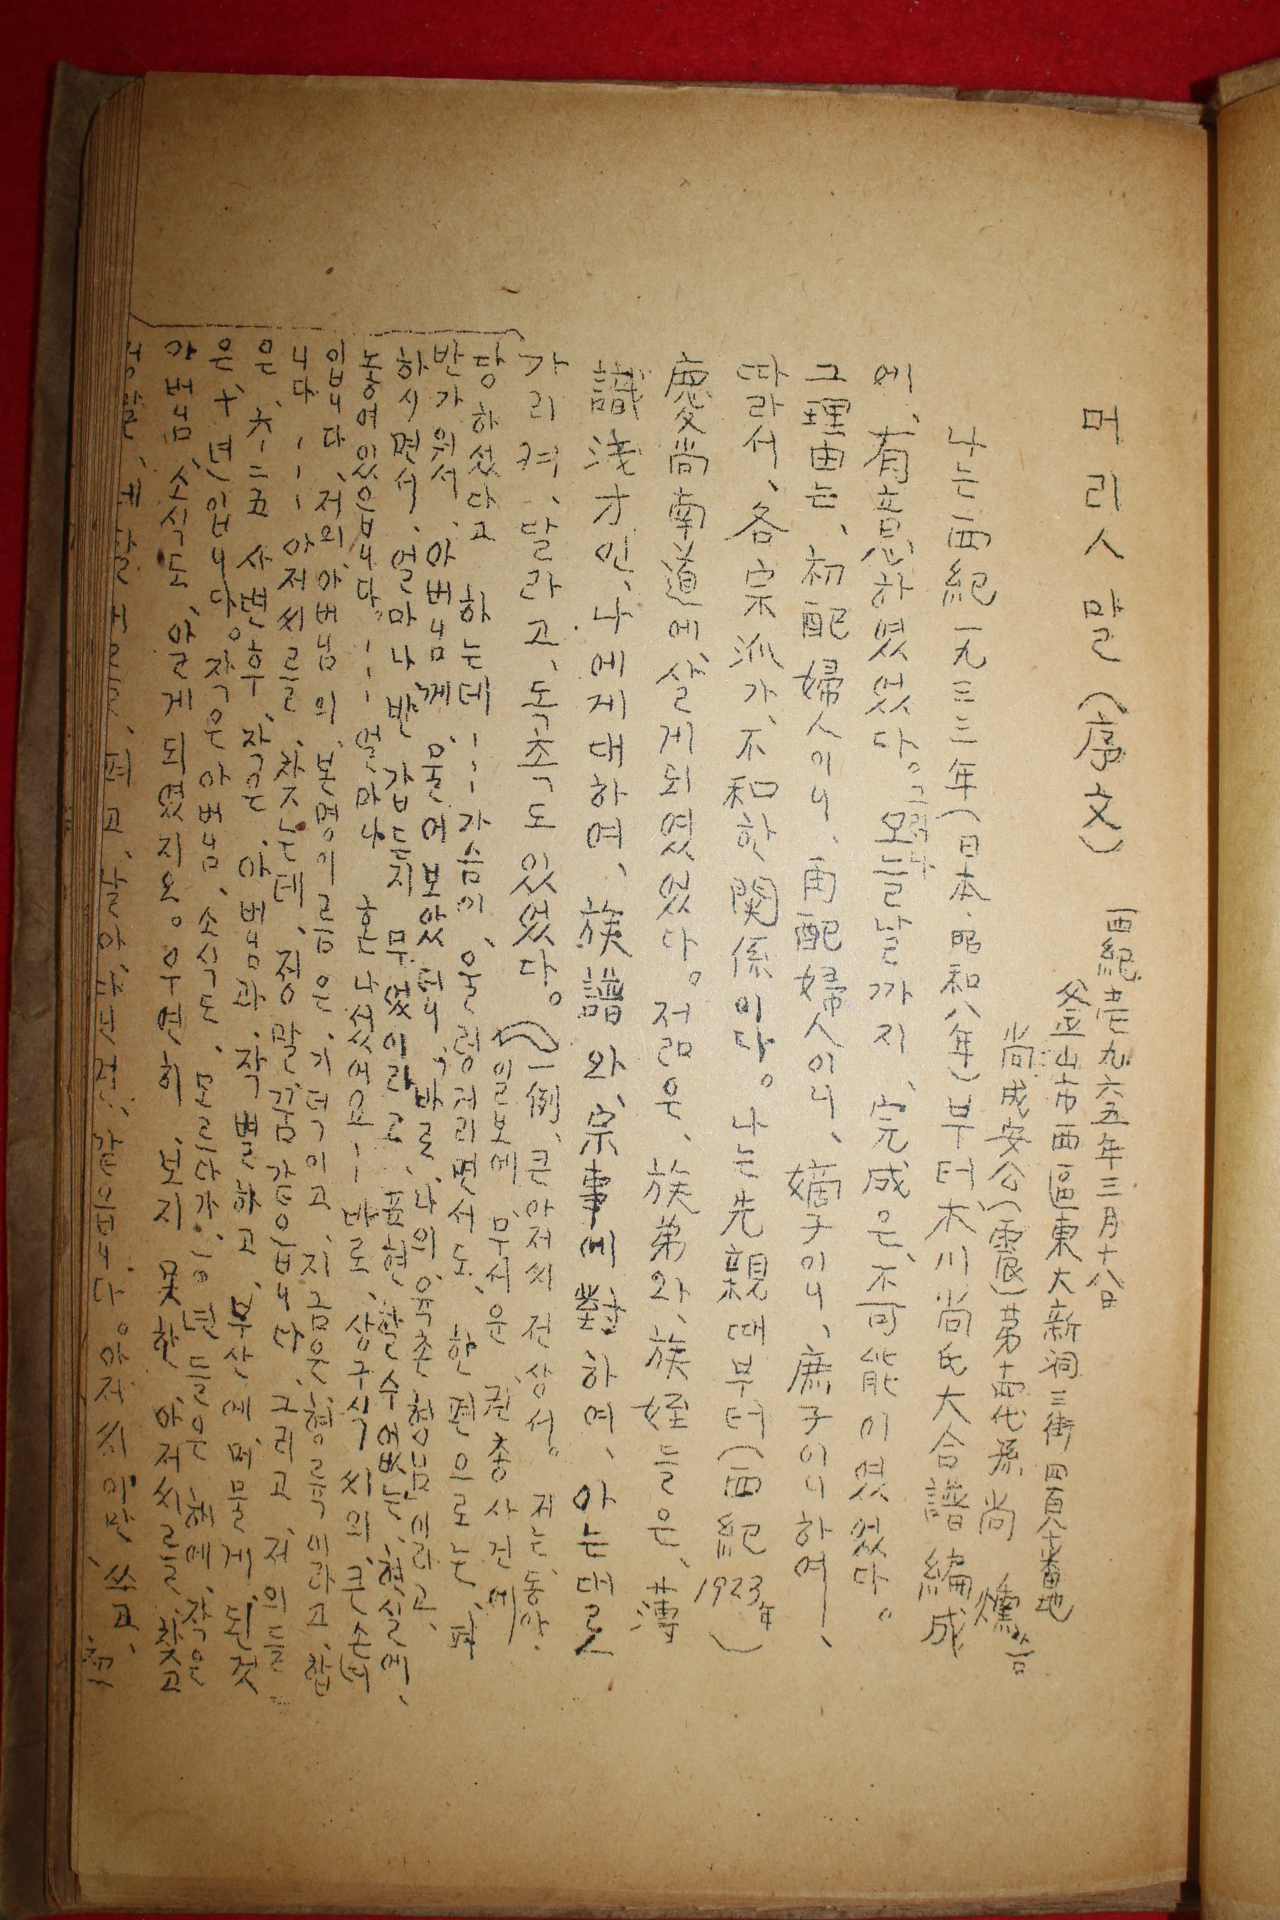 머리人말(序文)
西紀壱九六五年三月十八日
釜山市西區東大新洞三街四百八十番地
尚成安公(震)第十四代孫 尚 燻 씀
나는西紀一九三三年(日本.昭和八年)부터木川尚氏大合譜編成
에、有意하였었다。그러나 오늘날까지、完成은、不可能이였었다。
그理由는、初配婦人이니、再配婦人이니、嫡子이니、庶子이니하여、
따라서、各宗派가、不和한関係이다。나는先親때부터(西紀1923年)
慶尚南道에、살게되였었다。젊은、族弟와、族姪들은、薄
識浅才인、나에게대하여、族譜와、宗事에對하여、아는대로
가리켜、달라고、독촉도있었다。(一例、큰아저씨전상서。저는、동아.
일보에、무서운、권총사건에
당하셨다고 하는데、、、가슴이、울렁거리면서도、한편으로는、퍽
반가워서、아버님께、물어보았더니、바로、나의、육촌형님이라고、
하시면서、얼마나 반갑든지 무었이라고、표현할수없는、현실에、
놓여있읍니다。、、、얼마나 혼나셨어요、、바로、상구식씨의、큰손녀
입니다、저의、아버님의、본명이름은、기덕이고、지금은、형륙이라고、합
니다、、、아저씨를、찾는데、정말꿈같읍니다、그리고、저의들
은、六二五사변후、작은、아버님과、작별하고、부산에、머물게、된것
은、十년입니다。작은아버님、소식도、모르다가、一○년들은해에、작은
아버님、소식도、알게되였지요。우연히、보지못한、아저씨를、찾고
펴고、같읍니다。아저씨이만、쓰고、